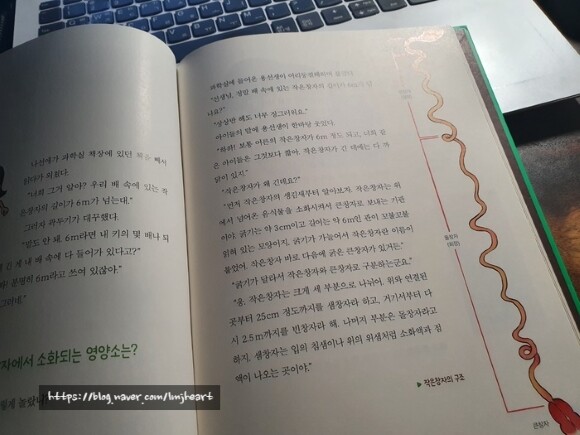 나선애가 과학실 책상에 있던 책을
있다가 외쳤다.
그거 알아? 우리 배 속에 있는 작
은창자의 길이가 6m가 넘는대."
그러자 곽두기가 대꾸했다.
말도 안 돼. 6m라면 내 키의 몇 배나 되
긴 게 내 배 속에 다 들어가 있다고?"
분명히 6m라고 쓰여 있잖아."
자에서 소화되는 영양소는?
과학실에 들어온 용선생이
"선생님, 정말 배 속에 있는 작은창자의 길이가 6m가
나요?"
"상상만 해도 너무 징그러워요."
아이들의 말에 용선생이 한바탕 웃었다.
"하하! 보통 어른의 작은창자가 6m 정도 되고, 너희 같
은 아이들은 그것보다 짧아. 작은창자가 긴 데에는 다 까
닭이 있지."
"작은창자가 왜 긴데요?"
"먼저 작은창자의 생김새부터 알아보자. 작은창자는 위
에서 넘어온 음식물을 소화시켜서 큰창자로 보내는 기관
이야. 굵기는 약 3cm이고 길이는 약 6m인 관이 꼬불꼬불
얽혀 있는 모양이지. 굵기가 가늘어서 작은창자란 이름이
붙었어. 작은창자 바로 다음에 굵은 큰창자가 있거든."
"굵기가 달라서 작은창자와 큰창자로 구분하는군요."
"응. 작은창자는 크게 세 부분으로 나뉘어. 위와 연결된
곳부터 25cm 정도까지를 샘창자라 하고, 거기서부터 다
시 2.5m까지를 빈창자라 해. 나머지 부분은 돌창자라고
하지. 샘창자는 입의 침샘이나 위의 위샘처럼 소화액과 점
액이 나오는 곳이야."
▶ 작은창자의 구조
돌창자
(회장)
큰창자
https://blog.naver.com/lmjheart